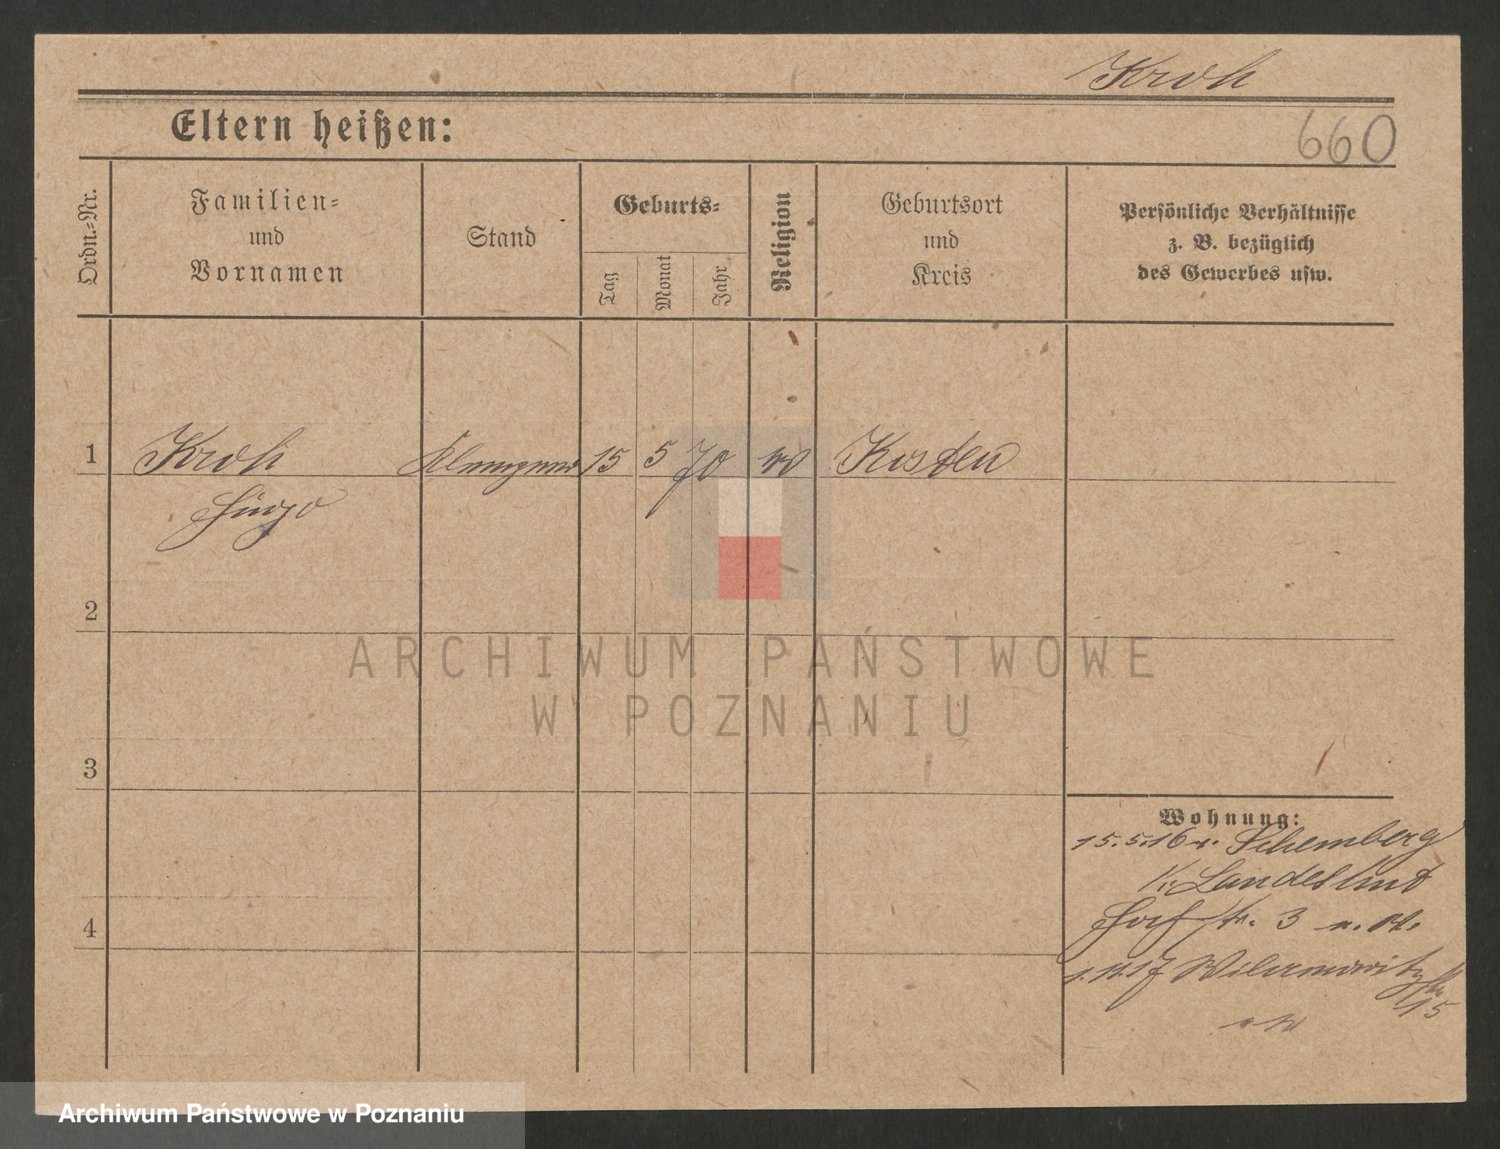 Kroh
Eltern heißen:
660
Ordn.-Nr.
Familien-
und
Vornamen
Stand
Geburts-
Tag
Monat
Jahr
Religion
Geburtsort
und
Kreis
Persönliche Verhältnisse
z. B. bezüglich
des Gewerbes usw.
1
Kroh
Klempner
15
5
70
Kosten
Hugo
2
ARCHIWUM PAŃSTWOWE
W POZNANIU
3
Wohnung:
15.5.16 v. Schemberg
K. Landeshut
3
4
1.11.17
15
Archiwum Państwowe w Poznaniu